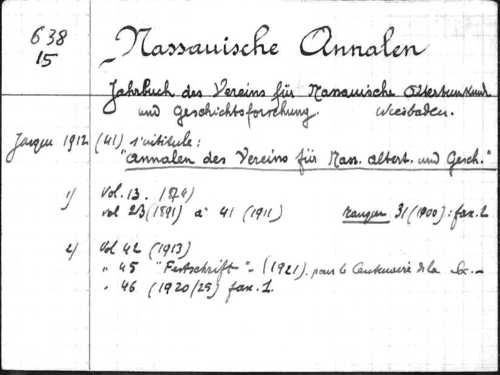 638
15
Nassauische Annalen
Jahrbuch des Vereins für Nassauische Altertumskund
und Geschichtsforschung. Wiesbaden.
1912 (41) s'intitule:
"Annalen des Vereins für Nass. Altert. und Gesch."
1) Vol. 13. (1874)
vol 23 (1891) à 41 (1911) manque 31 (1900): fax. 2
2) Vol 42 (1913)
" 45 "Festschrift" - (1921). pour le Centenaire de la
" 46 (1920/25) fax. 1.